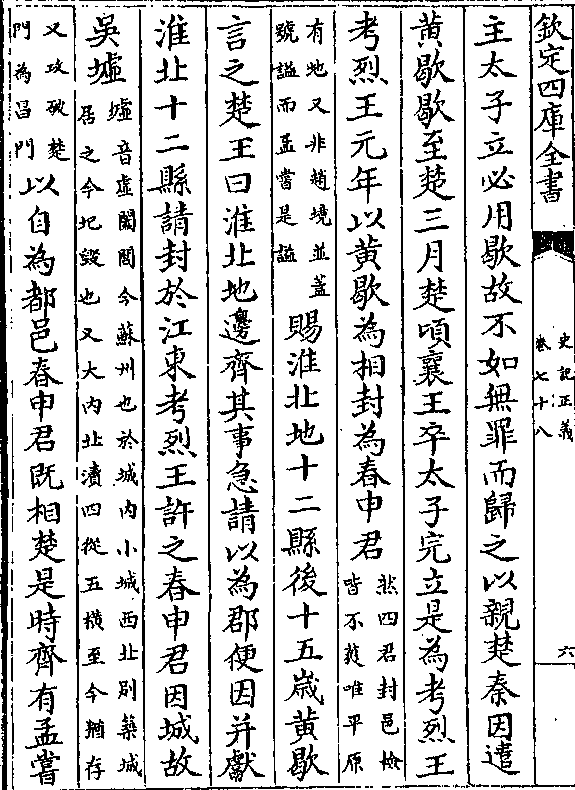 欽定四庫全書
史記正義
卷七十八
六
主太子立必用歇故不如無罪而歸之以親楚秦因遣
黄歇歇至楚三月楚頃襄王卒太子完立是為考烈王
考烈王元年以黄歇為相封為春申君
然四君封邑檢
皆不獲唯平原
有地又非趙境並蓋
號謚而孟嘗是謚
賜淮北地十二縣後十五歲黄歇
言之楚王曰淮北地邊齊其事急請以為郡便因并獻
淮北十二縣請封於江東考烈王許之春申君因城故
吳墟
墟音虛闔閭今蘇州也於城内小城西北别築城
居之今圯毁也又大内北瀆四從五横至今猶存
又攻破楚
門為昌門
以自為都邑春申君既相楚是時齊有孟嘗